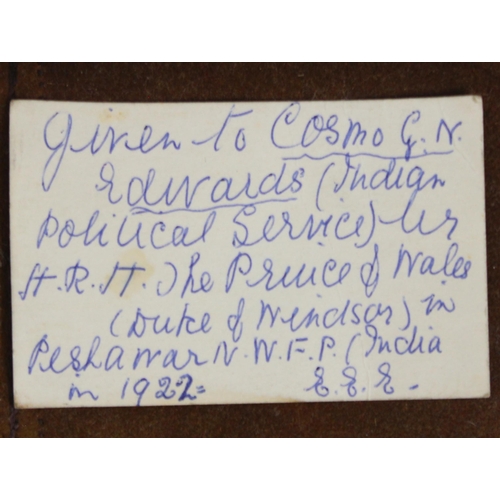 Given to Cosmo G. N.
Edwards (Indian
Political Service) by
H.R.H. The Prince of Wales
(Duke of Windsor) in
Peshawar N.W.F.P. (India
in 1922=
E.E.E.-